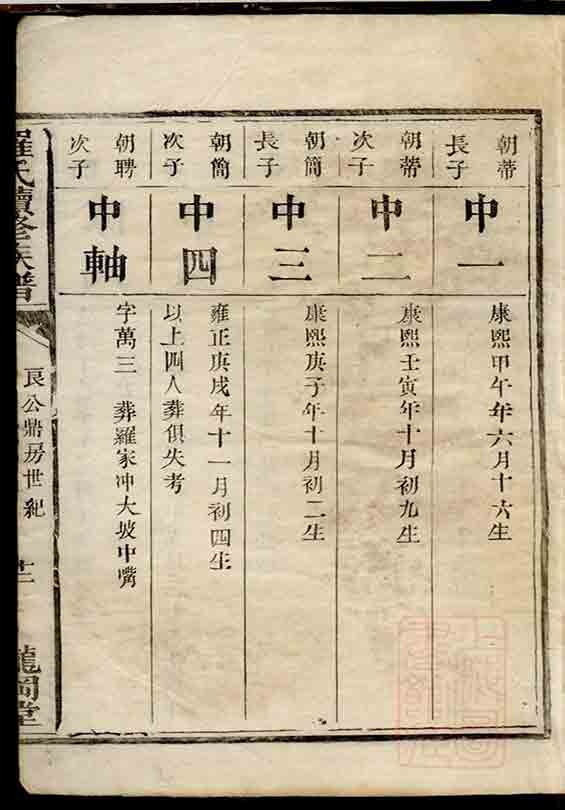 朝蒂
長子
中一
康熙甲午年六月十六生
朝蒂
次子
中二
康熙壬寅年十月初九生
朝簡
長子
中三
康熙庚子年十月初二生
朝簡
次子
中四
雍正庚戌年十一月初四生
以上四人葬俱失考
朝聘
次子
中軸
字萬三 葬羅家冲大坡中嘴
羅氏續修族譜
良公鼎房世紀
龍岡堂